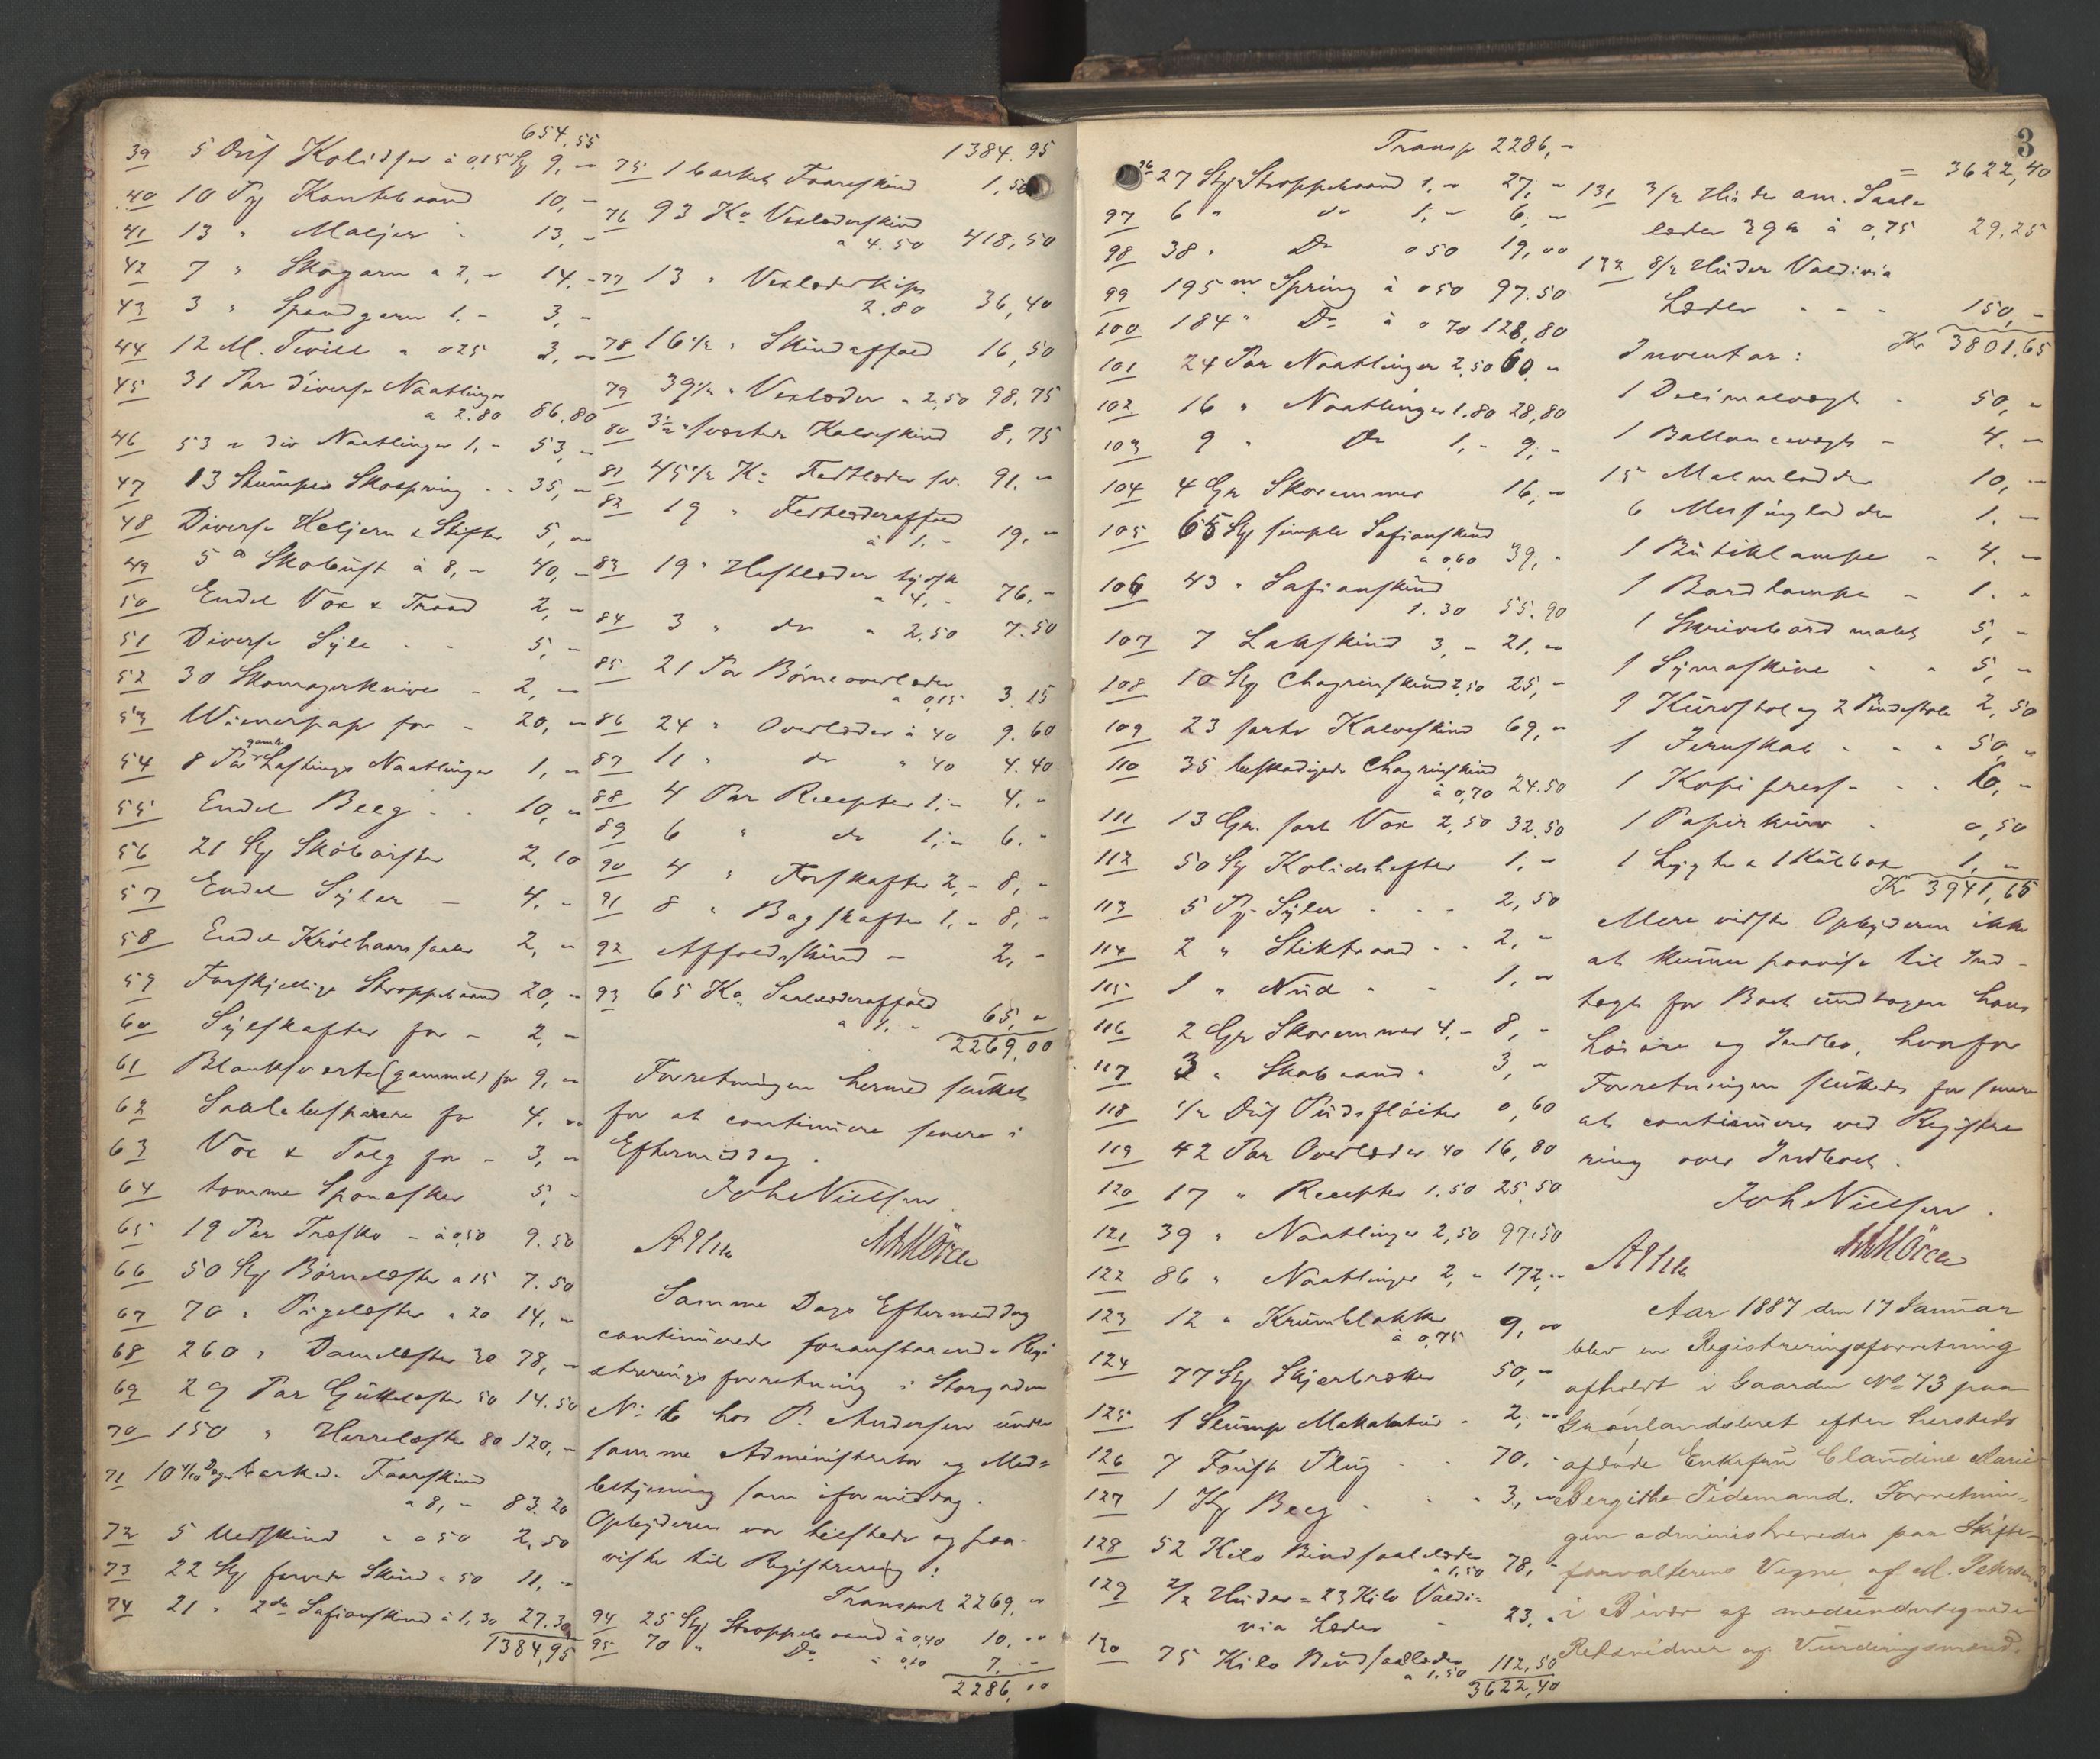 654,55
39 5 Dus Kolidser à 0,15 Sty 9,-
40 10 Pg Kantebaand 10,-
41 13 " Maljer " 13,-
42 7 " Skogarn a 2,- 14,-
43 3 " Spandgarn 1,- 3,-
44 12 M. Twill a 025 3,-
45 31 Par diverse Naatlinger
a 2.80 86.80
46 53 " div Naatlinger 1,- 53,-
47 13 Stumper Skospring - - 35,-
48 Diverse Heljern & Stifter 5,-
49 5 Skobust à 8,- 40,-
50 Endel Vox & Traad 2,-
51 Diverse Syle - - 5,-
52 30 Skomagerknive - 2,-
53 Wienerpap for - 20,-
gamle
54 8 Par Lastings Naatlinger 1,-
55 Endel Beeg - - 10,-
56 21 Sty Skobørster 2,10
57 Endel Syler - 4,-
58 Endel Krølhaarssaaler 2,-
59 Forskjellige Stroppebaand 20,-
60 Sylskafter for - 2,-
61 Blanksværte (gammel) for 9,-
62 Saalebesparere for 4,-
63 Vox & Talg for - 3,-
64 tomme Sponesker 5,-
65 19 Par Træsko - à 0,50 9.50
66 50 Sty Børnelæster a 15 7.50
67 70 " Pigelæster " 20 14,-
68 260 " Damelæster 30 78,-
69 29 Par Guttelæster 50 14.50
70 150 " Herrelæster 80 120,-
71 10 4/10 Deger barkede Faareskind
a 8,- 83.20
72 5 Uedskind " 0 50 2,50
73 22 Sty farvede Skind " 50 11,-
74 21 " 2da Safianskind à 1,30 27.30
1384,95
1384.95
75 1 barket Faareskind 1,50
76 93 Ko Vexlæderskind
a 4.50 418,50
77 13 " Vexlæderkips
2.80 36,40
78 16 1/2 " Skindaffald 16,50
79 39 1/2 " Vexlæder a 2,50 98,75
80 3 1/2 " sværtede Kalveskind 8,75
81 45 1/2 Ko Fedtlæder sv. 91.-
82 19 " Fedtlæderaffald
à 1.- 19.-
83 19 " Hestlæder tydsk
a 4.- 76.-
84 3 " do a 2.50 7.50
85 21 Par Børneoverlæder
a 0,15 3.15
86 24 " Overlæder à 40 9.60
87 11 " do " 40 4.40
88 4 Par Recepter 1,- 4.-
89 6 " do 1,- 6.-
90 4 " Forskafter 2,- 8,-
91 8 " Bagskafter 1,- 8,-
92 Affaldsskind - 2,-
93 65 Ko Saalelæderaffald
a 1.- 65,-
2269,00
Forretningen hermed sluttet
for at continuere senere i
Eftermiddag.
Joh Nielsen
Samme Dags Eftermiddag
continuerede foranstaaende Regi-
streringsforretning i Storgaden
No 16 hos P. Andersen under
samme Administrator og Med-
betjening som iformiddag.
Opbyderen var tilstede og paa-
viste til Registrering:
Transport 2269,-
94 25 Sty Stroppebaand à 0,40 10.00
95 70 " Do " 0,10 7.-
2286,00
3
Transp 2286,-
96 27 Sty Stroppebaand 1,- 27,-
97 6 " do 1,- 6.-
98 38 " Do 0 50 19,00
99 195 m Spring à 0 50 97.50
100 184 " Do à 0 70 128,80
101 24 Par Naatlinger 2.50 60.-
102 16 " Naatlinger 1.80 28,80
103 9 " Do 1,- 9,-
104 4 Gr Skoremmer 16,-
105 65 Sty simple Safianskind
a 0,60 39,-
106 43 " Safianskind
1.30 55.90
107 7 Lakskind 3,- 21.-
108 10 Sty Chagrinskind 2,50 25,-
109 23 sorte Kalveskind 69,-
110 35 beskadigede Chagrinskind
à 0,70 24.50
111 13 Gr. sort Vox 2,50 32.50
112 50 Sty Kolidshefter 1,-
113 5 Pg. Syler - - - 2,50
114 2 " Stiktraad - - 2,-
115 1 " Nud - - 1,-
116 2 Gr Skoremmer 4,- 8,-
117 3 " Skobaand " 3,-
118 1/2 Dus Pudsfløiter 0,60
119 42 Par Overlæder 40 16,80
120 17 " Recepter 1.50 25,50
121 39 " Naatlinger 2,50 97.50
122 86 " Naatlinger 2,- 172,-
123 12 " Krumblokke
à 0,75 9,00
124 77 Sty Skjærbrætter 50,-
125 1 Slump Makulatur - 2,-
126 7 Foust Plug - - 70,-
127 1 Kg Beeg - - - 3,-
128 52 Kilo Bindsaalelæder
a 1,50 78,-
129 2/2 Huder = 23 Kilo Valdi-
via Læder - 23,-
130 75 Kilo Bindsaalelæder
a 1.50 112,50
3622,40
= 3622,40
131 3/2 Huder am. Saale
læder 39 K à 0,75 29.25
132 8/2 Huder Valdivia
Læder - - - 150,-
Kr 3801,65
Inventar:
1 Decimalvægt - 50,-
1 Ballancevægt - 4.-
15 Malmlodder 10,-
6 Messinglodder 1.-
1 Butiklampe - 4.-
1 Bordlampe - 1.-
1 Skrivebord malet 5,-
1 Symaskine - - 5,-
1 Kurvstol og 2 Pindestole 2,50
1 Jernskab - - - 50,-
1 Kopipresse - - 6,-
1 Papirkurv - 0,50
1 Lygte & 1 Kulbox 1,-
Kr 3941,65
Mere vidste Opbyderen ikke
at kunne paavise til Ind-
tægt for Boet undtagen hans
Løsøre og Indbo, hvorfor
Forretningen sluttedes for senere
at continueres ved Registre
ring over Indboet.
Joh Nielsen.
Aar 1887 den 17 Januar
blev en Registreringsforretning
afholdt i Gaarden No 73 paa
Grønlandsleret efter hersteds
afdøde Enkefru Claudine Marie
Bergithe Tidemand. Forretnin-
gen administreredes paa Skifte-
forvalterens Vegne af M. Petersen
i Overvær af medundertegnede
Retsvidner og Vurderingsmænd.